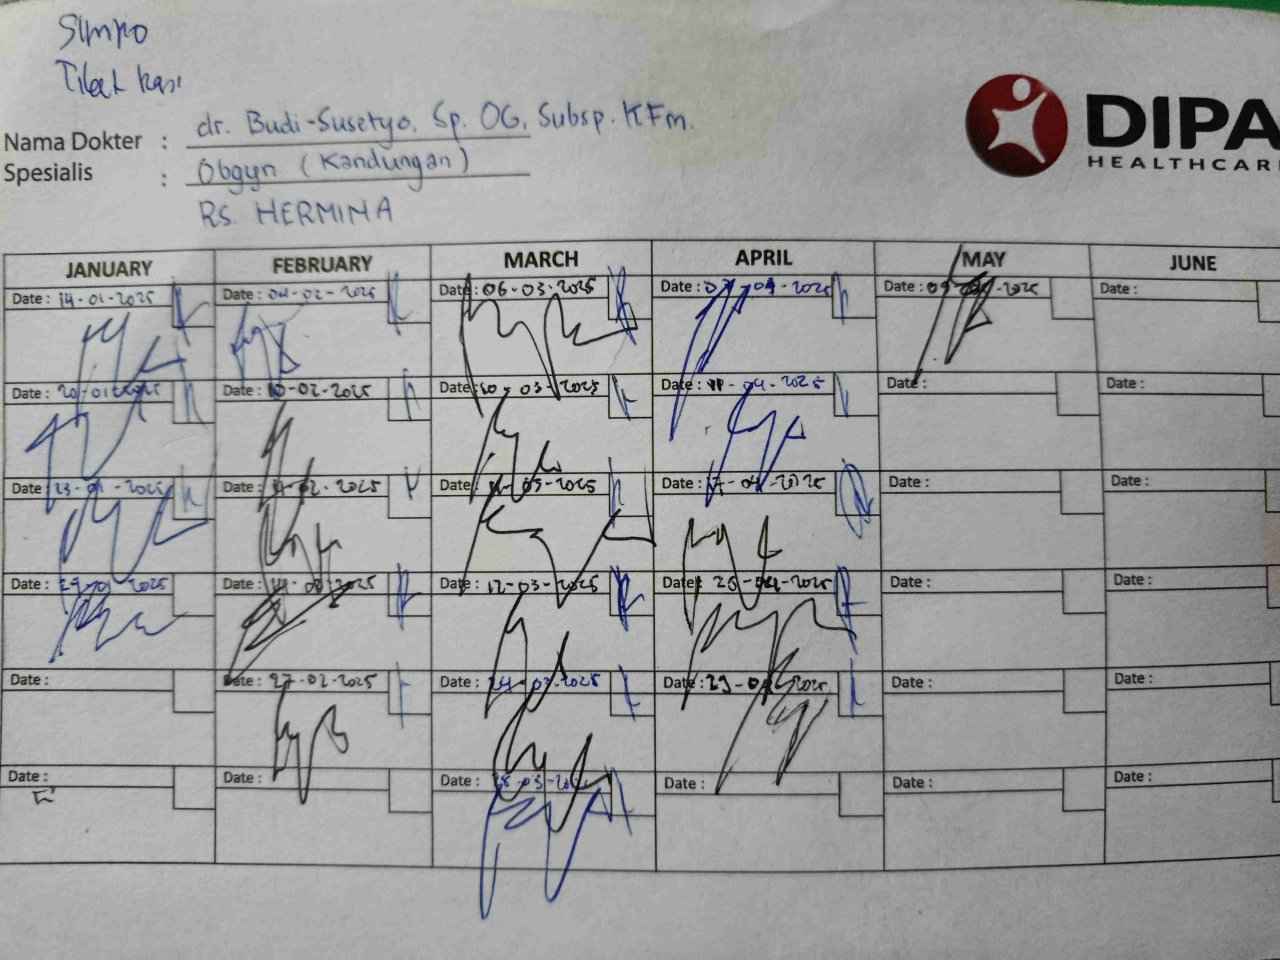 Simpo
Nama Dokter : dr. Budi-Susetyo, Sp.OG, Subsp. KFm.
Spesialis : Obgyn (Kandungan)
RS. HERMINA
DIPA
HEALTHCAR
JANUARY FEBRUARY MARCH APRIL MAY JUNE
Date : 14-01-2025 Date : 04-02-2025 Date : 06-03-2025 Date : 07-04-2025 Date : 2025 Date :
Date : 20-01-2025 Date : 10-02-2025 Date : 10-03-2025 Date : 04-2025 Date : Date :
Date : 23-01-2025 Date : 02-2025 Date : 03-2025 Date : 17-04-2025 Date : Date :
Date : 29-01-2025 Date : 2025 Date : 12-03-2025 Date : 2025 Date : Date :
Date : Date : 27-02-2025 Date : 24-03-2025 Date : 29-04-2025 Date : Date :
Date : Date : Date : Date : Date : Date :